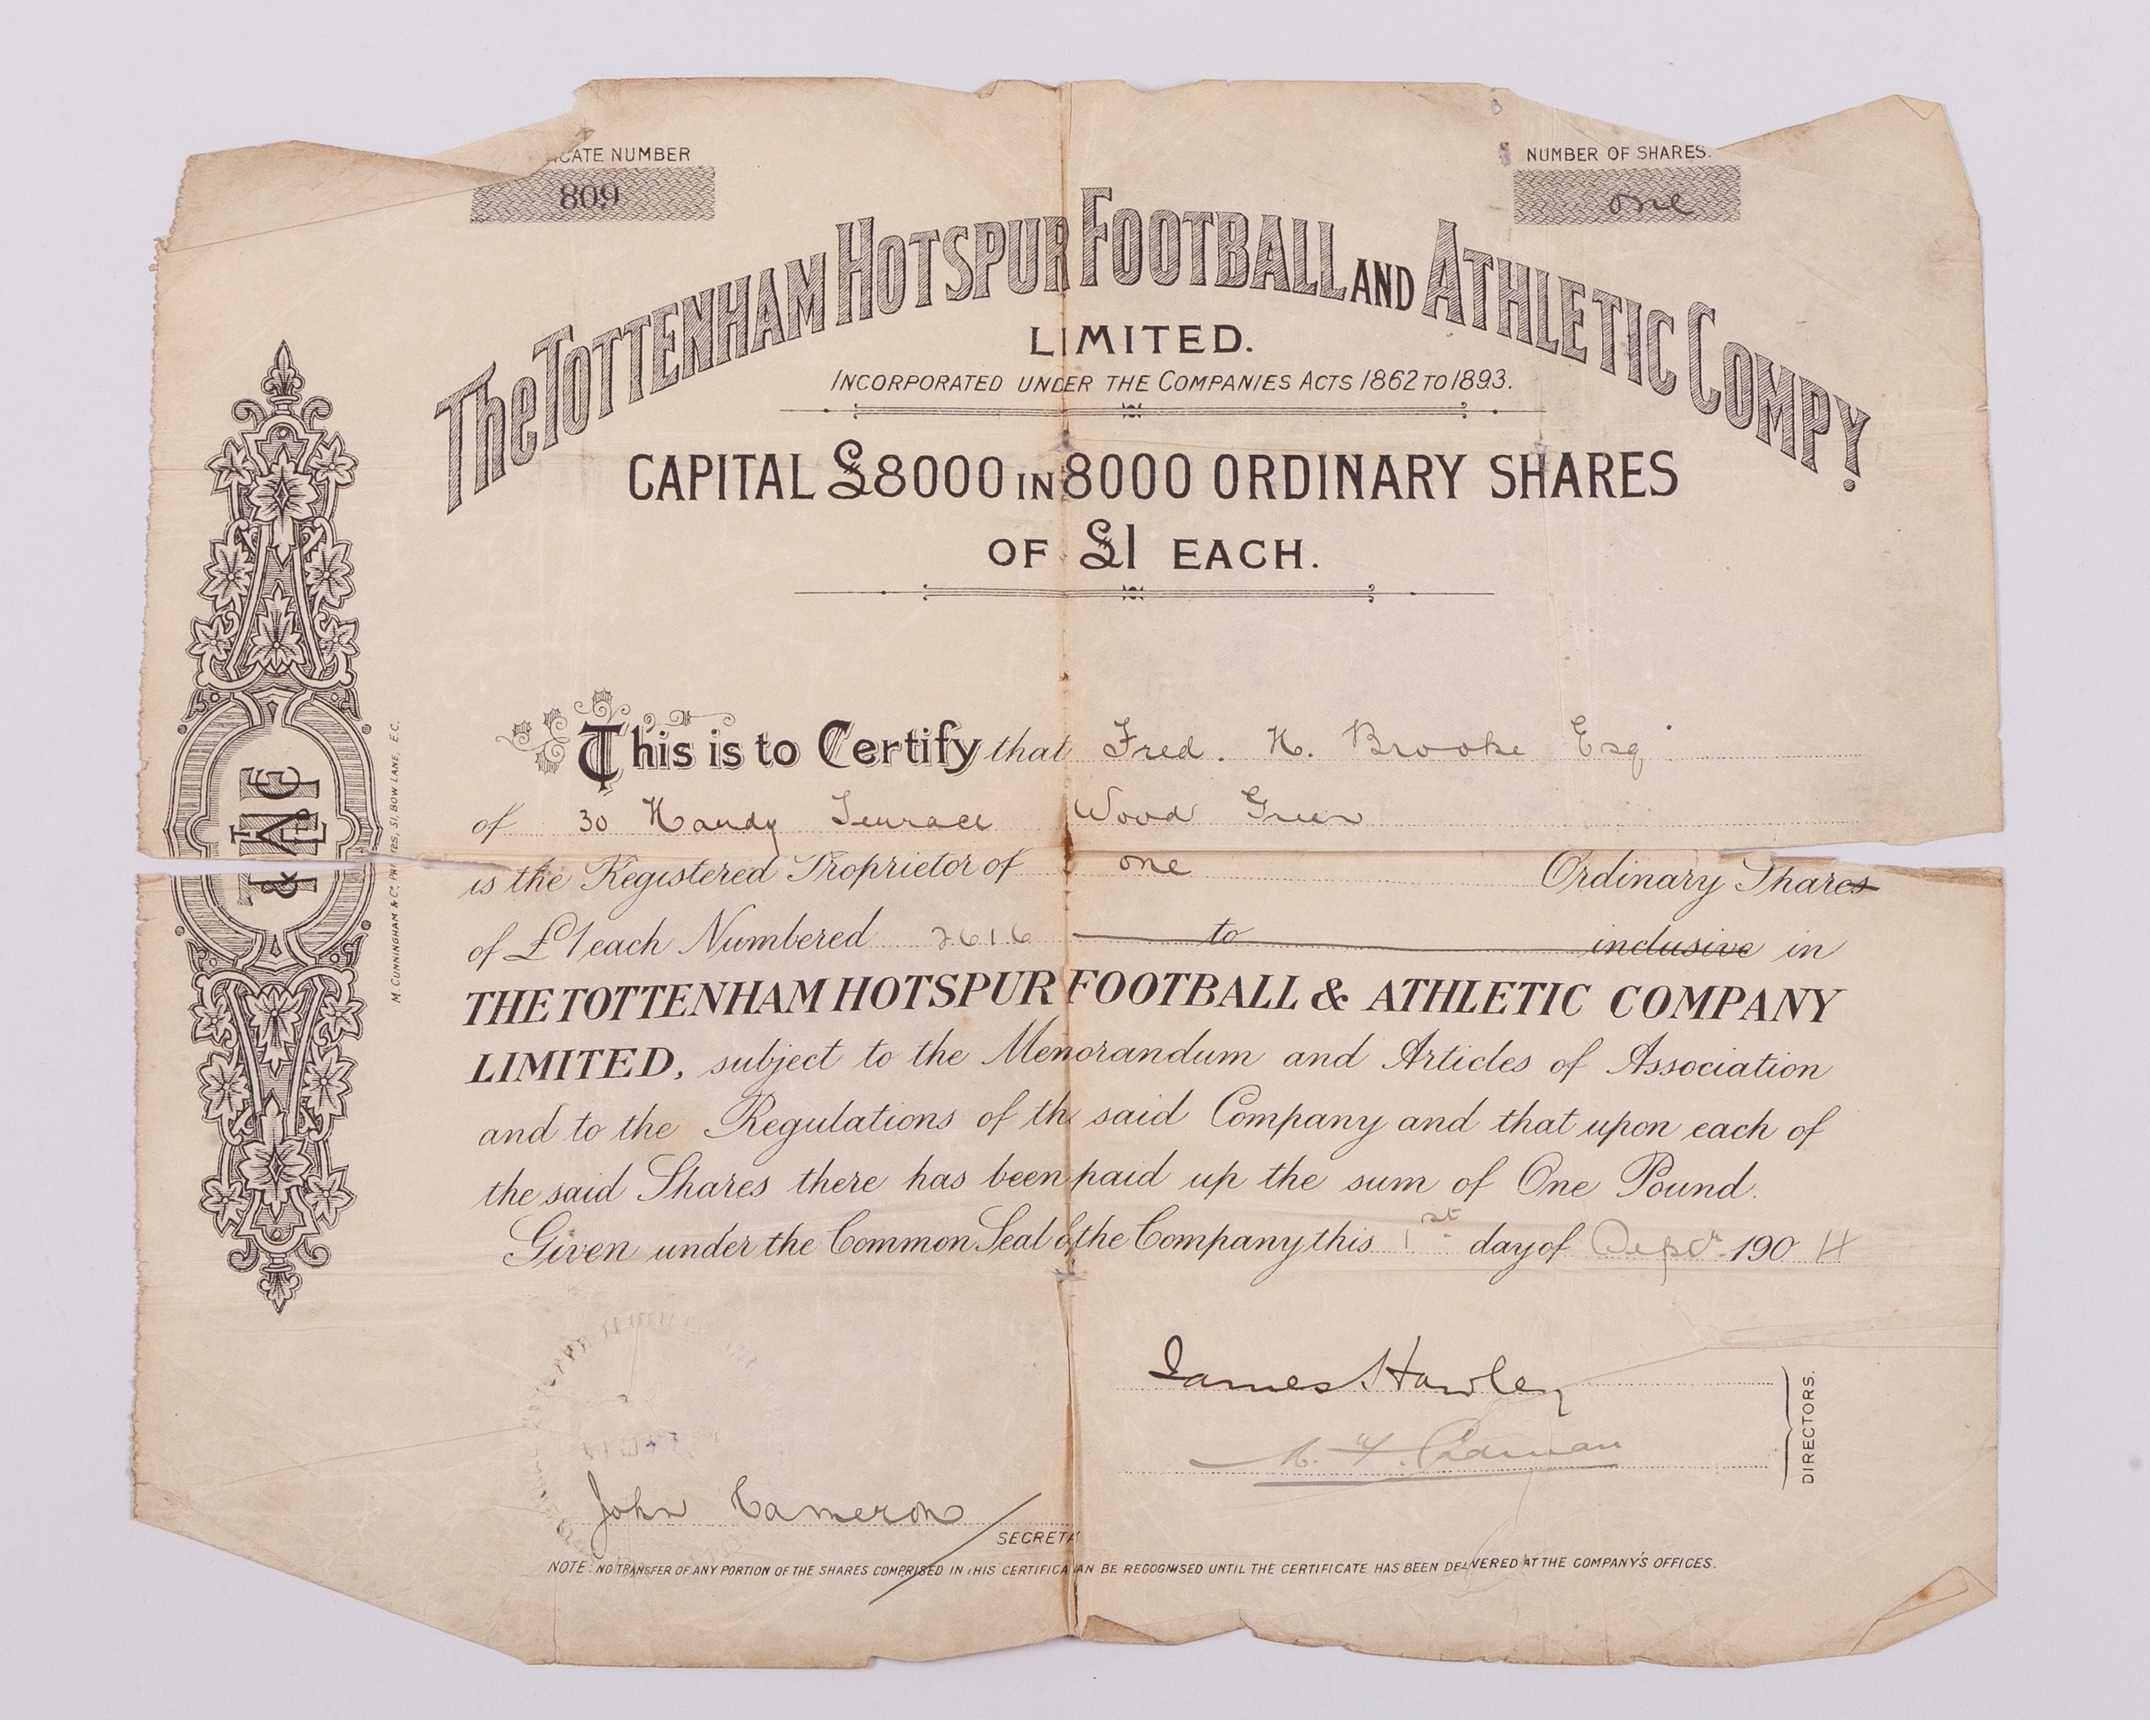 ICATE NUMBER
809
NUMBER OF SHARES.
one
The TOTTENHAM HOTSPUR FOOTBALL AND ATHLETIC COMPY.
LIMITED.
INCORPORATED UNDER THE COMPANIES ACTS 1862 TO 1893.
CAPITAL £8000 IN 8000 ORDINARY SHARES
OF £1 EACH.
This is to Certify that Fred. H. Brooke Esq
of 30 Handy Terrace Wood Green
is the Registered Proprietor of one Ordinary Shares
of £1 each Numbered 2616 to inclusive in
THE TOTTENHAM HOTSPUR FOOTBALL & ATHLETIC COMPANY
LIMITED, subject to the Memorandum and Articles of Association
and to the Regulations of th said Company and that upon each of
the said Shares there has been paid up the sum of One Pound.
Given under the Common Seal of the Company this 1st day of Sept. 1904
James Hawley
DIRECTORS.
John Cameron
SECRETA
NOTE: NO TRANSFER OF ANY PORTION OF THE SHARES COMPRISED IN THIS CERTIFICA AN BE RECOGNISED UNTIL THE CERTIFICATE HAS BEEN DELIVERED AT THE COMPANY'S OFFICES.
M. CUNNINGHAM & Co. 51, BOW LANE, E.C.